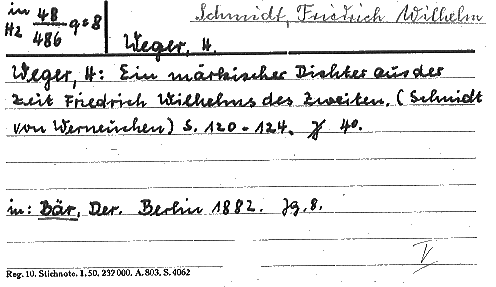 in 48 q=8 Schmidt, Friedrich Wilhelm
Hz 486
Weger, H.
Weger, H: Ein märkischer Dichter aus der
Zeit Friedrich Wilhelms des Zweiten. (Schmidt
von Werneuchen) S. 120-124. 40.
in: Bär, Der. Berlin 1882. Jg. 8.
V
Reg. 10. Stichnote. 1,50. 232000. A. 803. S. 4062